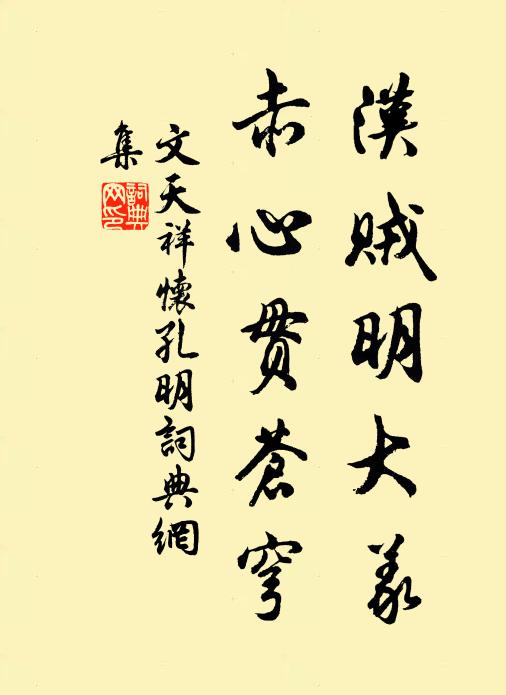 漢賊明大義
赤心貫蒼穹
文天祥懷孔明詞典網
集
詞典
网印